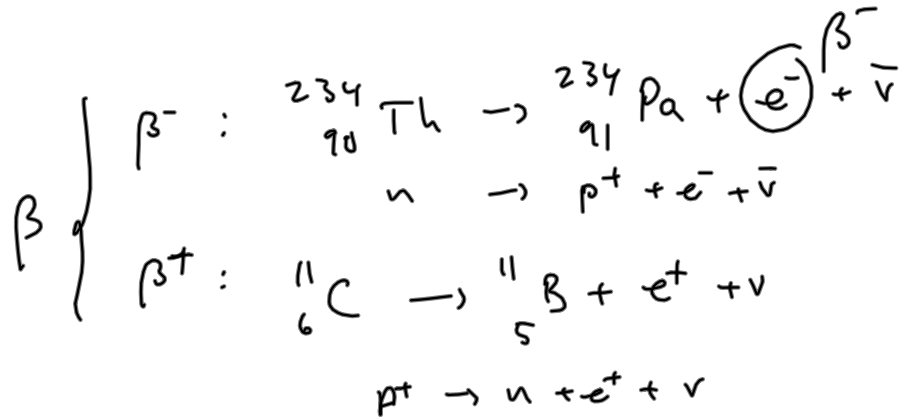 β⁻
β⁻ : ²³⁴₉₀Th → ²³⁴₉₁Pa + e⁻ + ν̄
n → p⁺ + e⁻ + ν̄
β
β⁺ : ¹¹₆C → ¹¹₅B + e⁺ + ν
p⁺ → n + e⁺ + ν